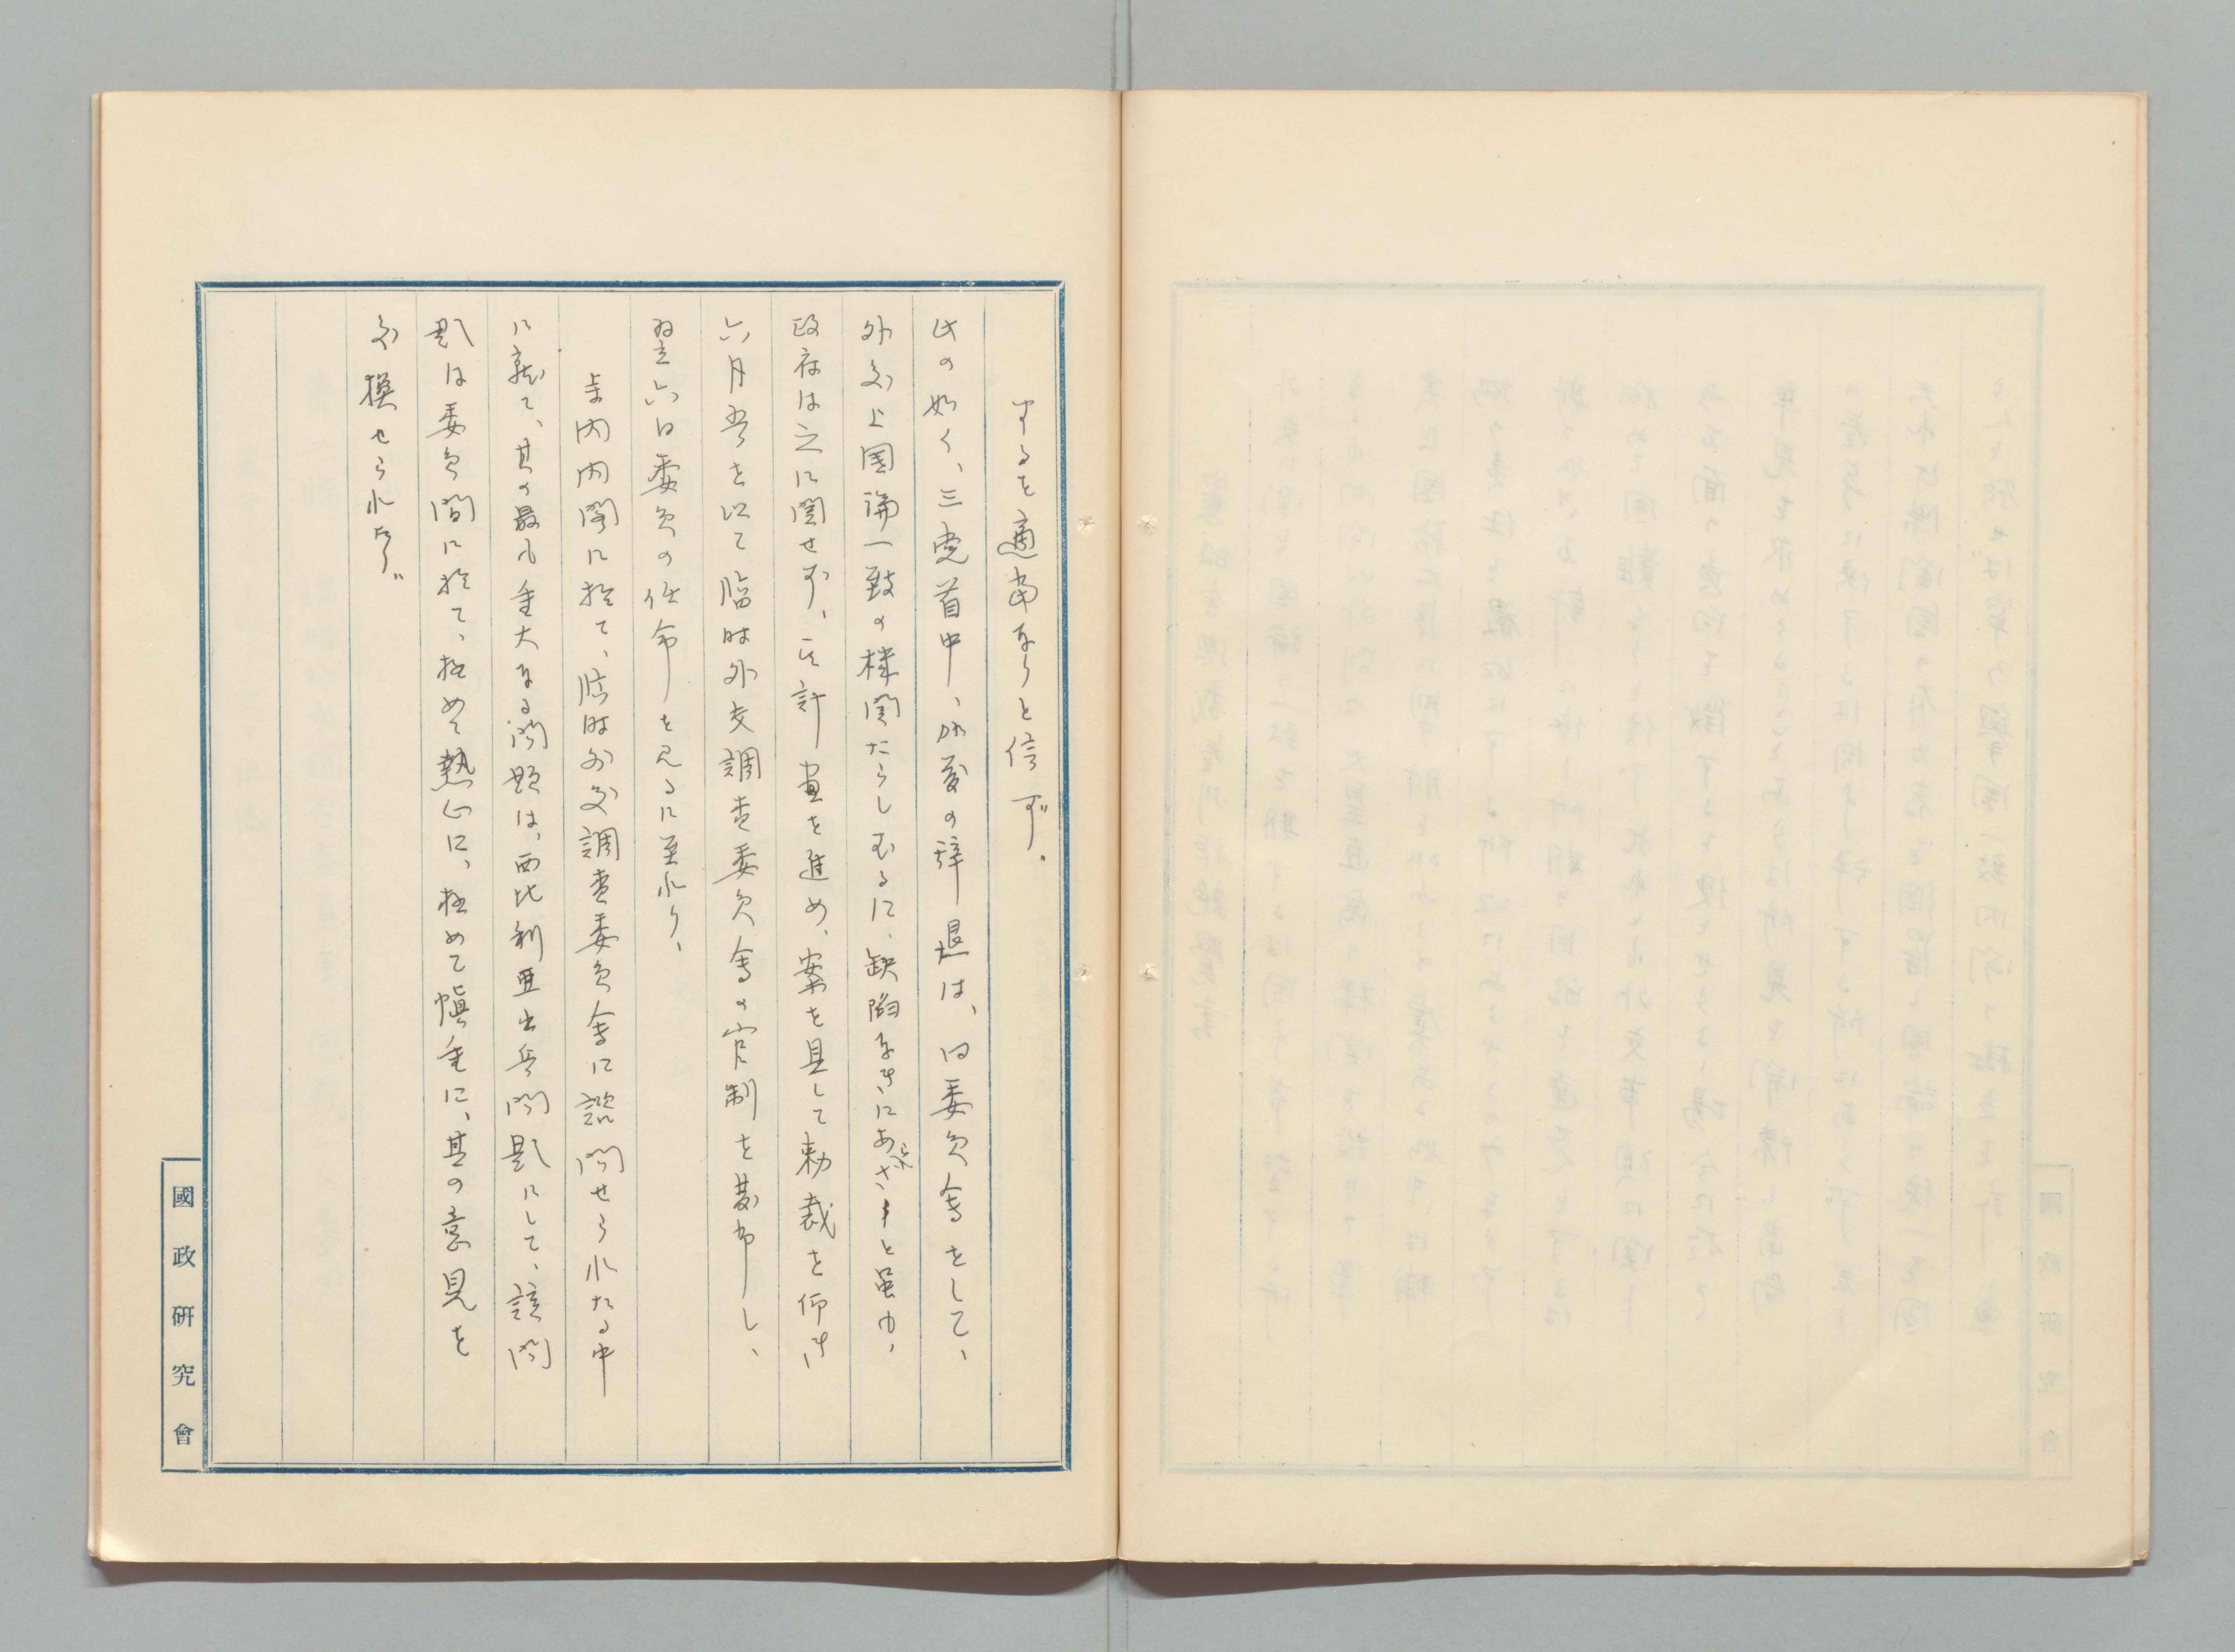 するを適当なりと信ず。
此の如く、三党首中、加藤の辞退は、同委員会をして、
外交上国論一致の機関たらしむるに、缺陥なきにあらざりしと雖も、
政府は之に関せず、其計画を進め、案を具して勅裁を仰ぎ
六月五日を以て臨時外交調査委員会の官制を発布し、
翌六日委員の任命を見るに至れり、
寺内内閣に於て、臨時外交調査委員会に諮問せられたる中
に就て、其の最も重大なる問題は、西比利亜出兵問題にして、該問
題は委員間に於て、極めて熱心に、極めて慎重に、其の意見を
交換せられたり。
國政研究會